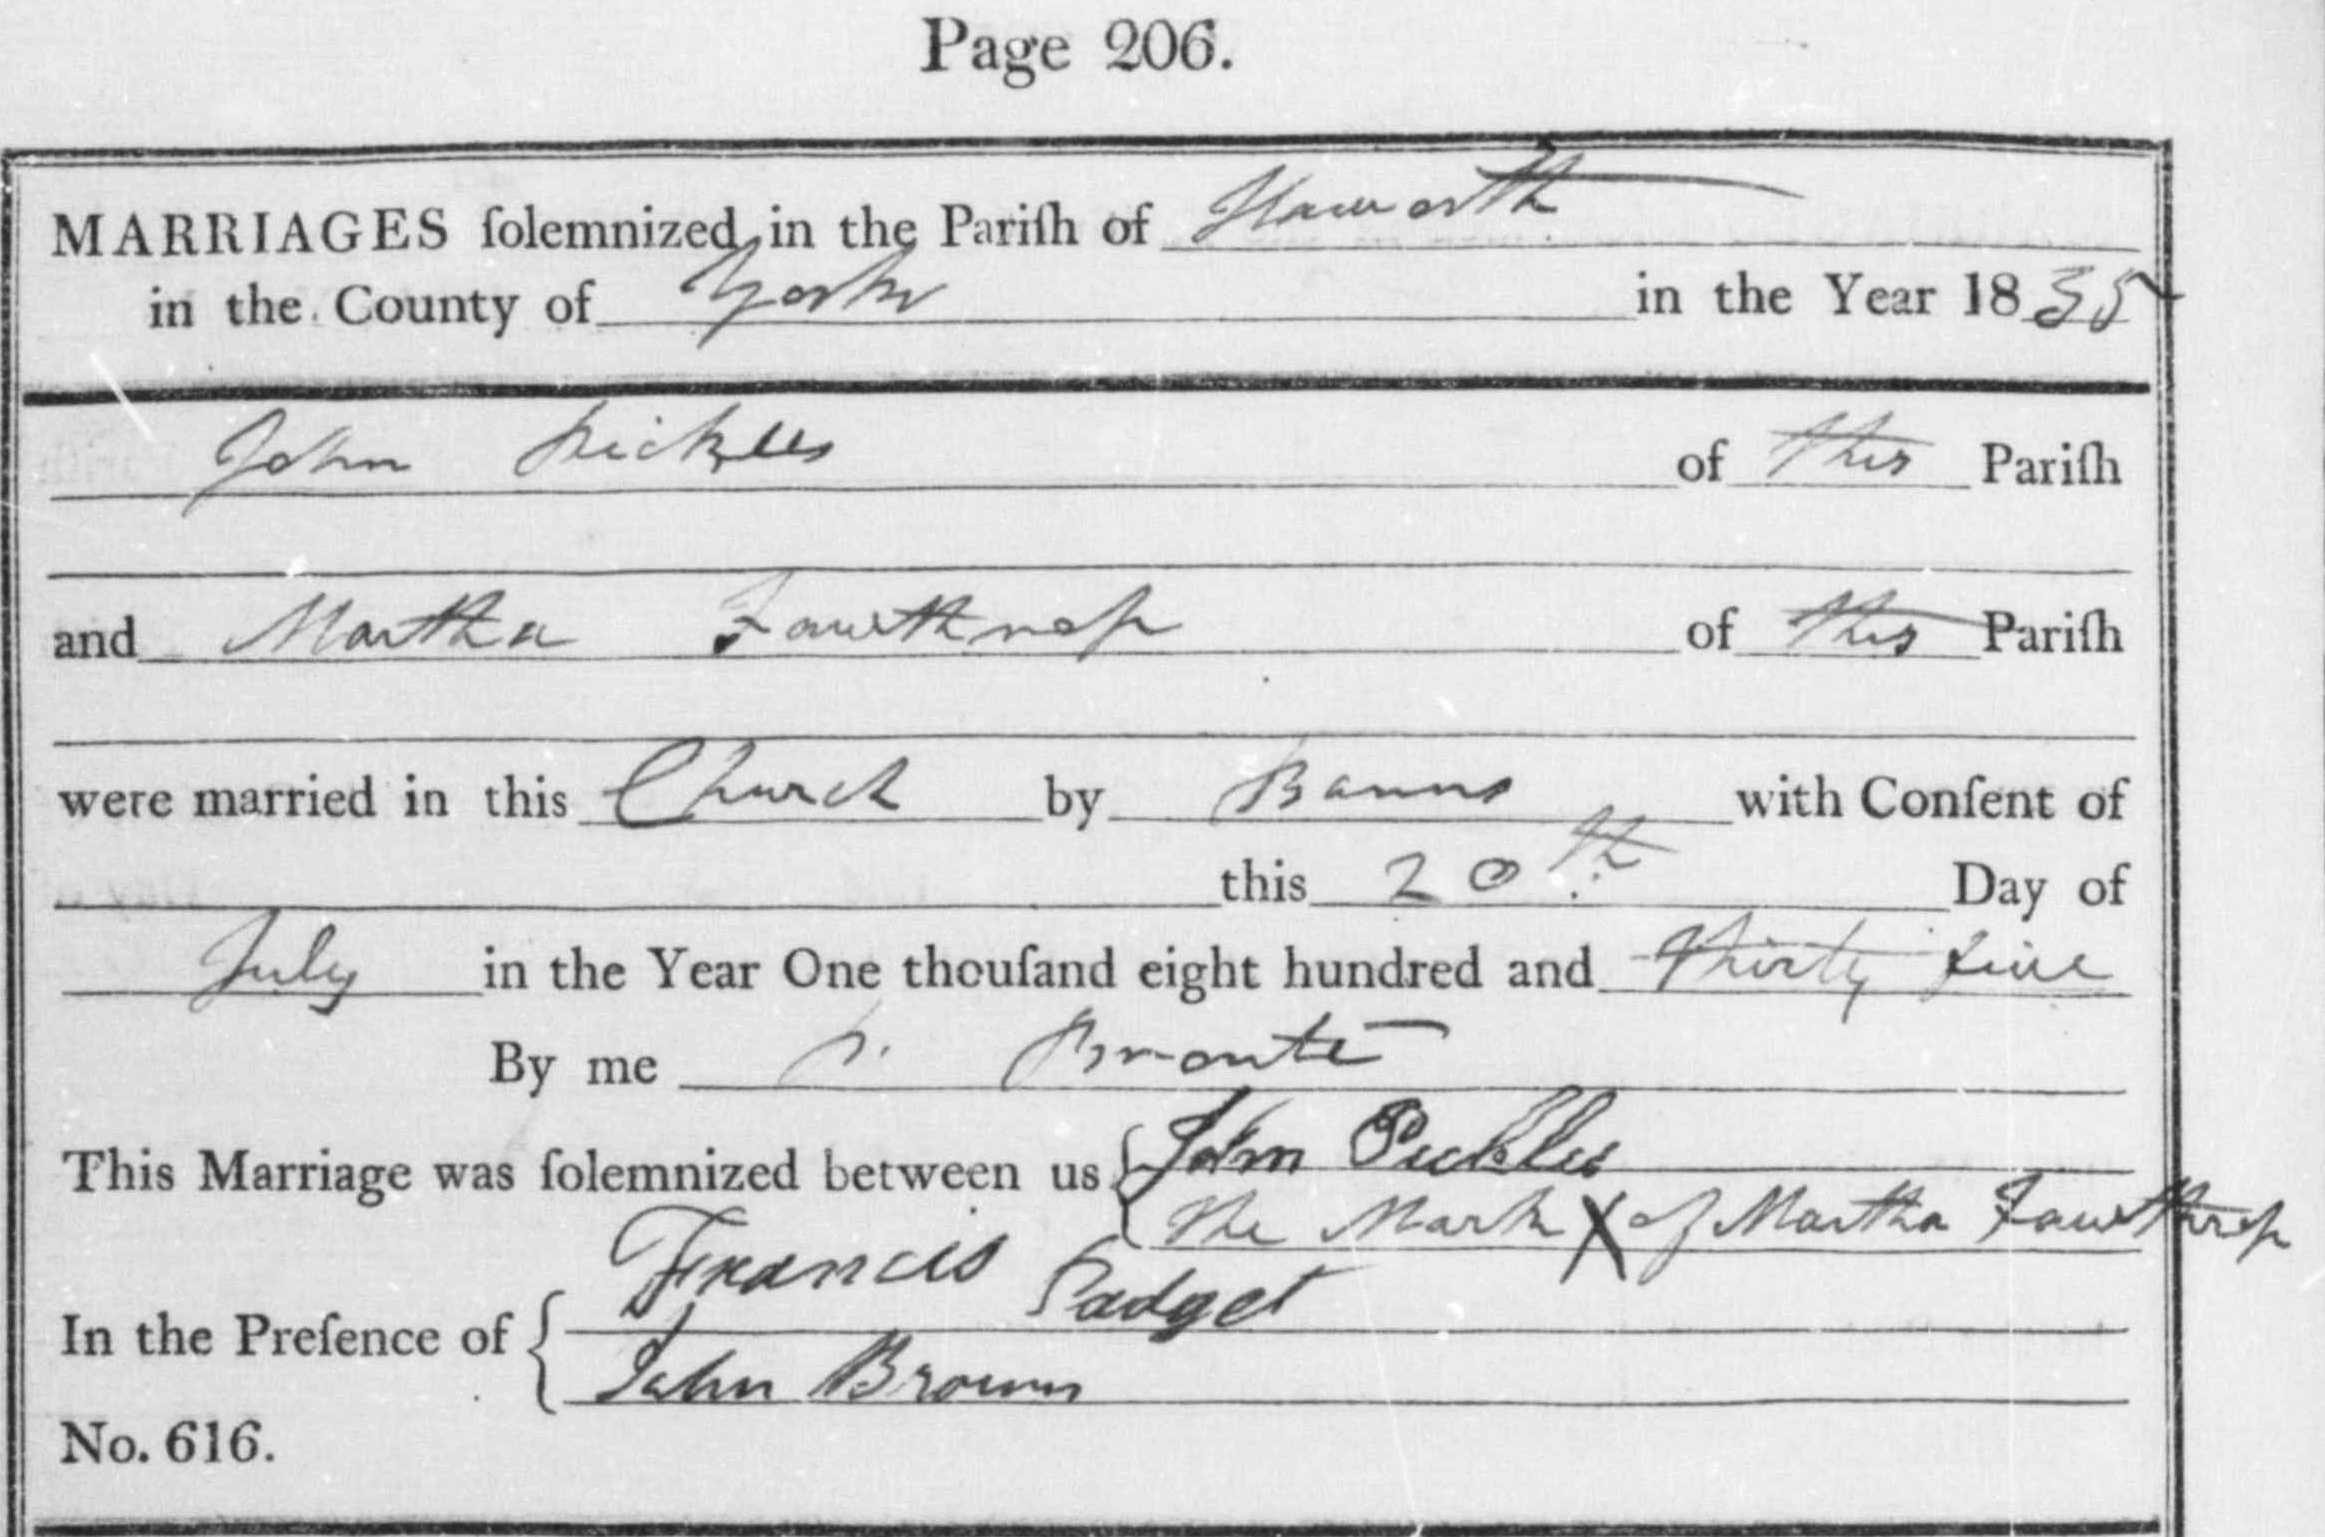 Page 206.
MARRIAGES ſolemnized in the Pariſh of Haworth
in the County of York in the Year 1835
John Pickles of this Pariſh
and Martha Fawthrop of this Pariſh
were married in this Church by Banns with Conſent of
this 20th Day of
July in the Year One thouſand eight hundred and thirty five
By me P. Bronte
This Marriage was ſolemnized between us { John Pickles
The Mark X of Martha Fawthrop
In the Preſence of { Francis Padget
John Brown
No. 616.